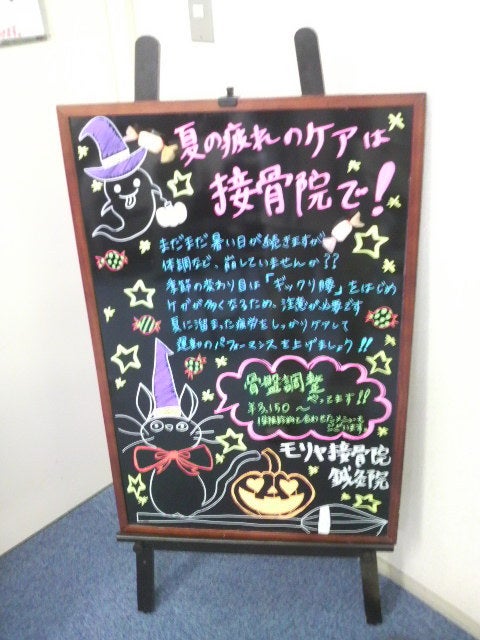 夏の疲れのケアは
接骨院で!
まだまだ暑い日が続きますが
体調など、崩していませんか??
季節の変わり目は「ギックリ腰」をはじめ
ケガが多くなるため、注意が必要です
夏に溜まった疲労をしっかりケアして
運動のパフォーマンスを上げましょう!!
骨盤調整
やってます!!
¥3,150〜
モリヤ接骨院
鍼灸院